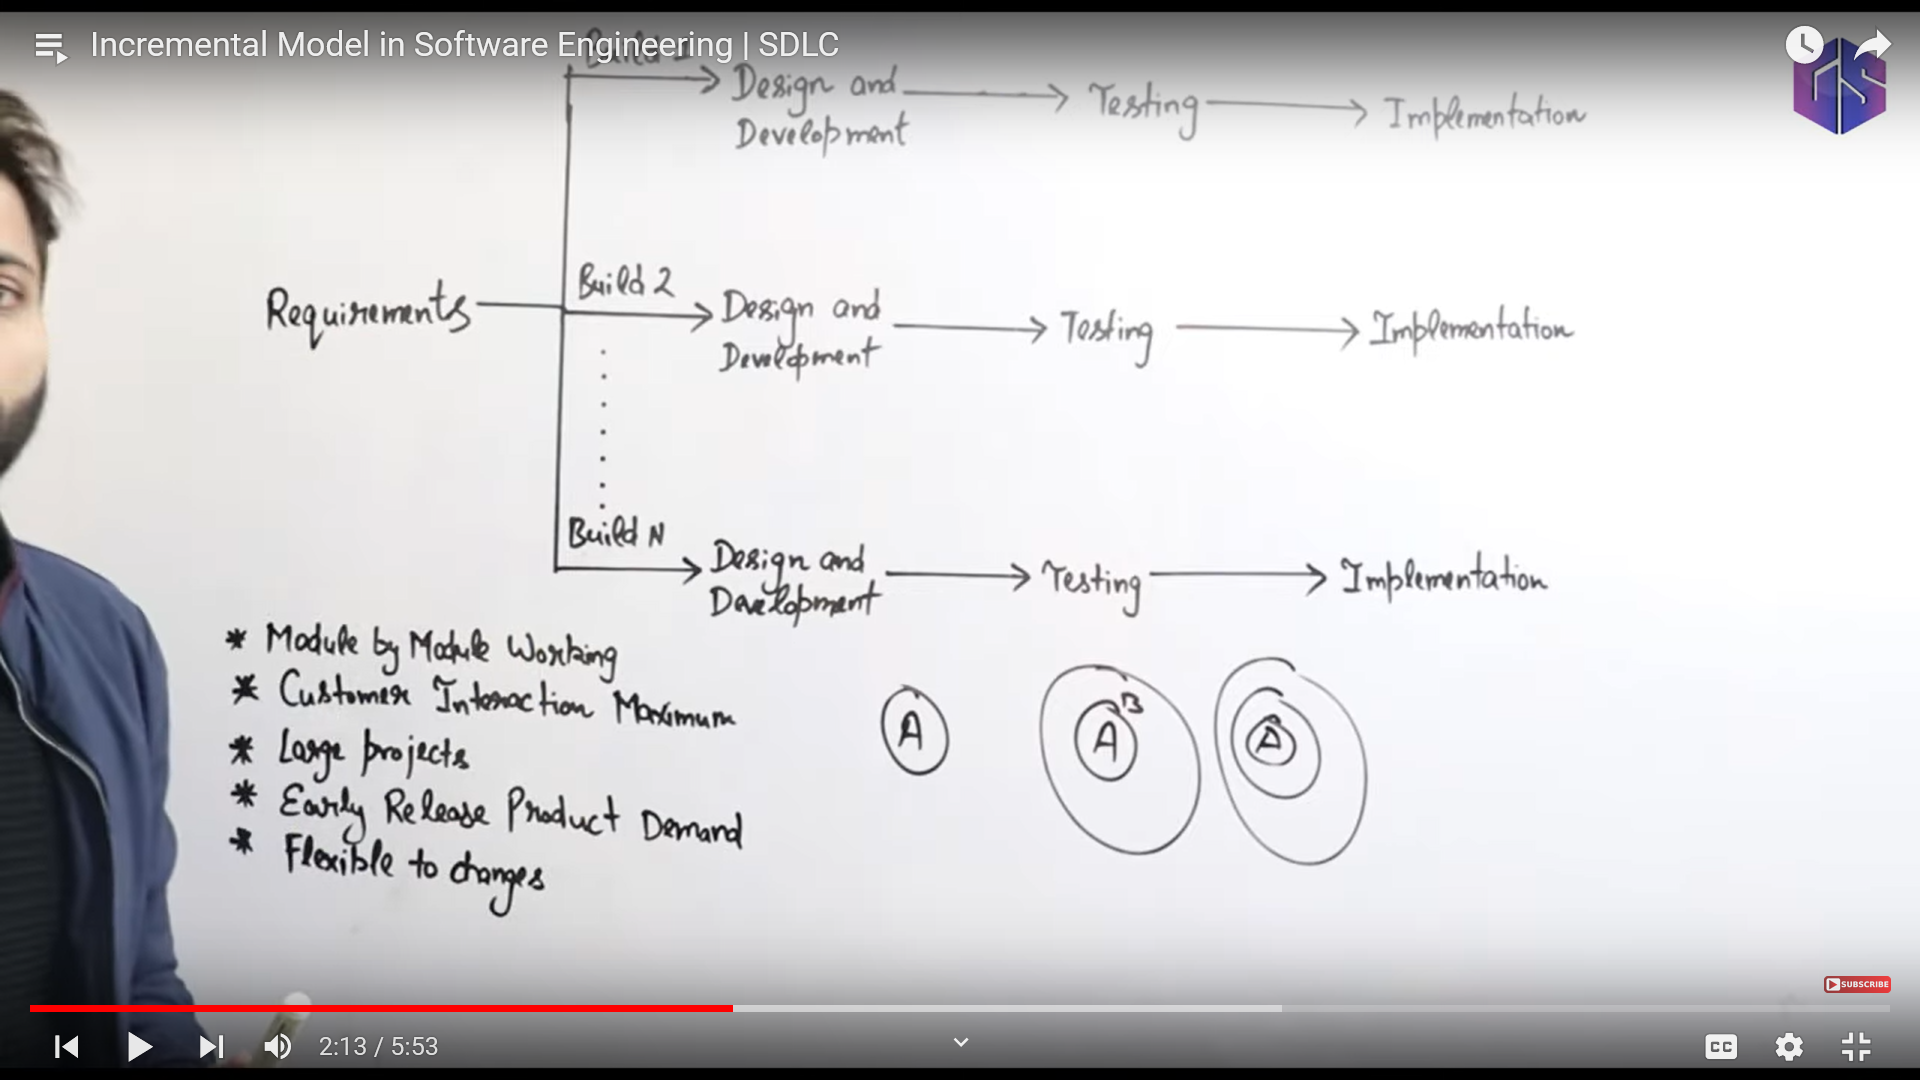 Incremental Model in Software Engineering | SDLC
Build 1
Design and
Development
Testing
Implementation
Requirements
Build 2
Design and
Development
Testing
Implementation
Build N
Design and
Development
Testing
Implementation
* Module by Module Working
* Customer Interaction Maximum
* Large projects
* Early Release Product Demand
* Flexible to changes
A
A
B
A
SUBSCRIBE
2:13 / 5:53
CC